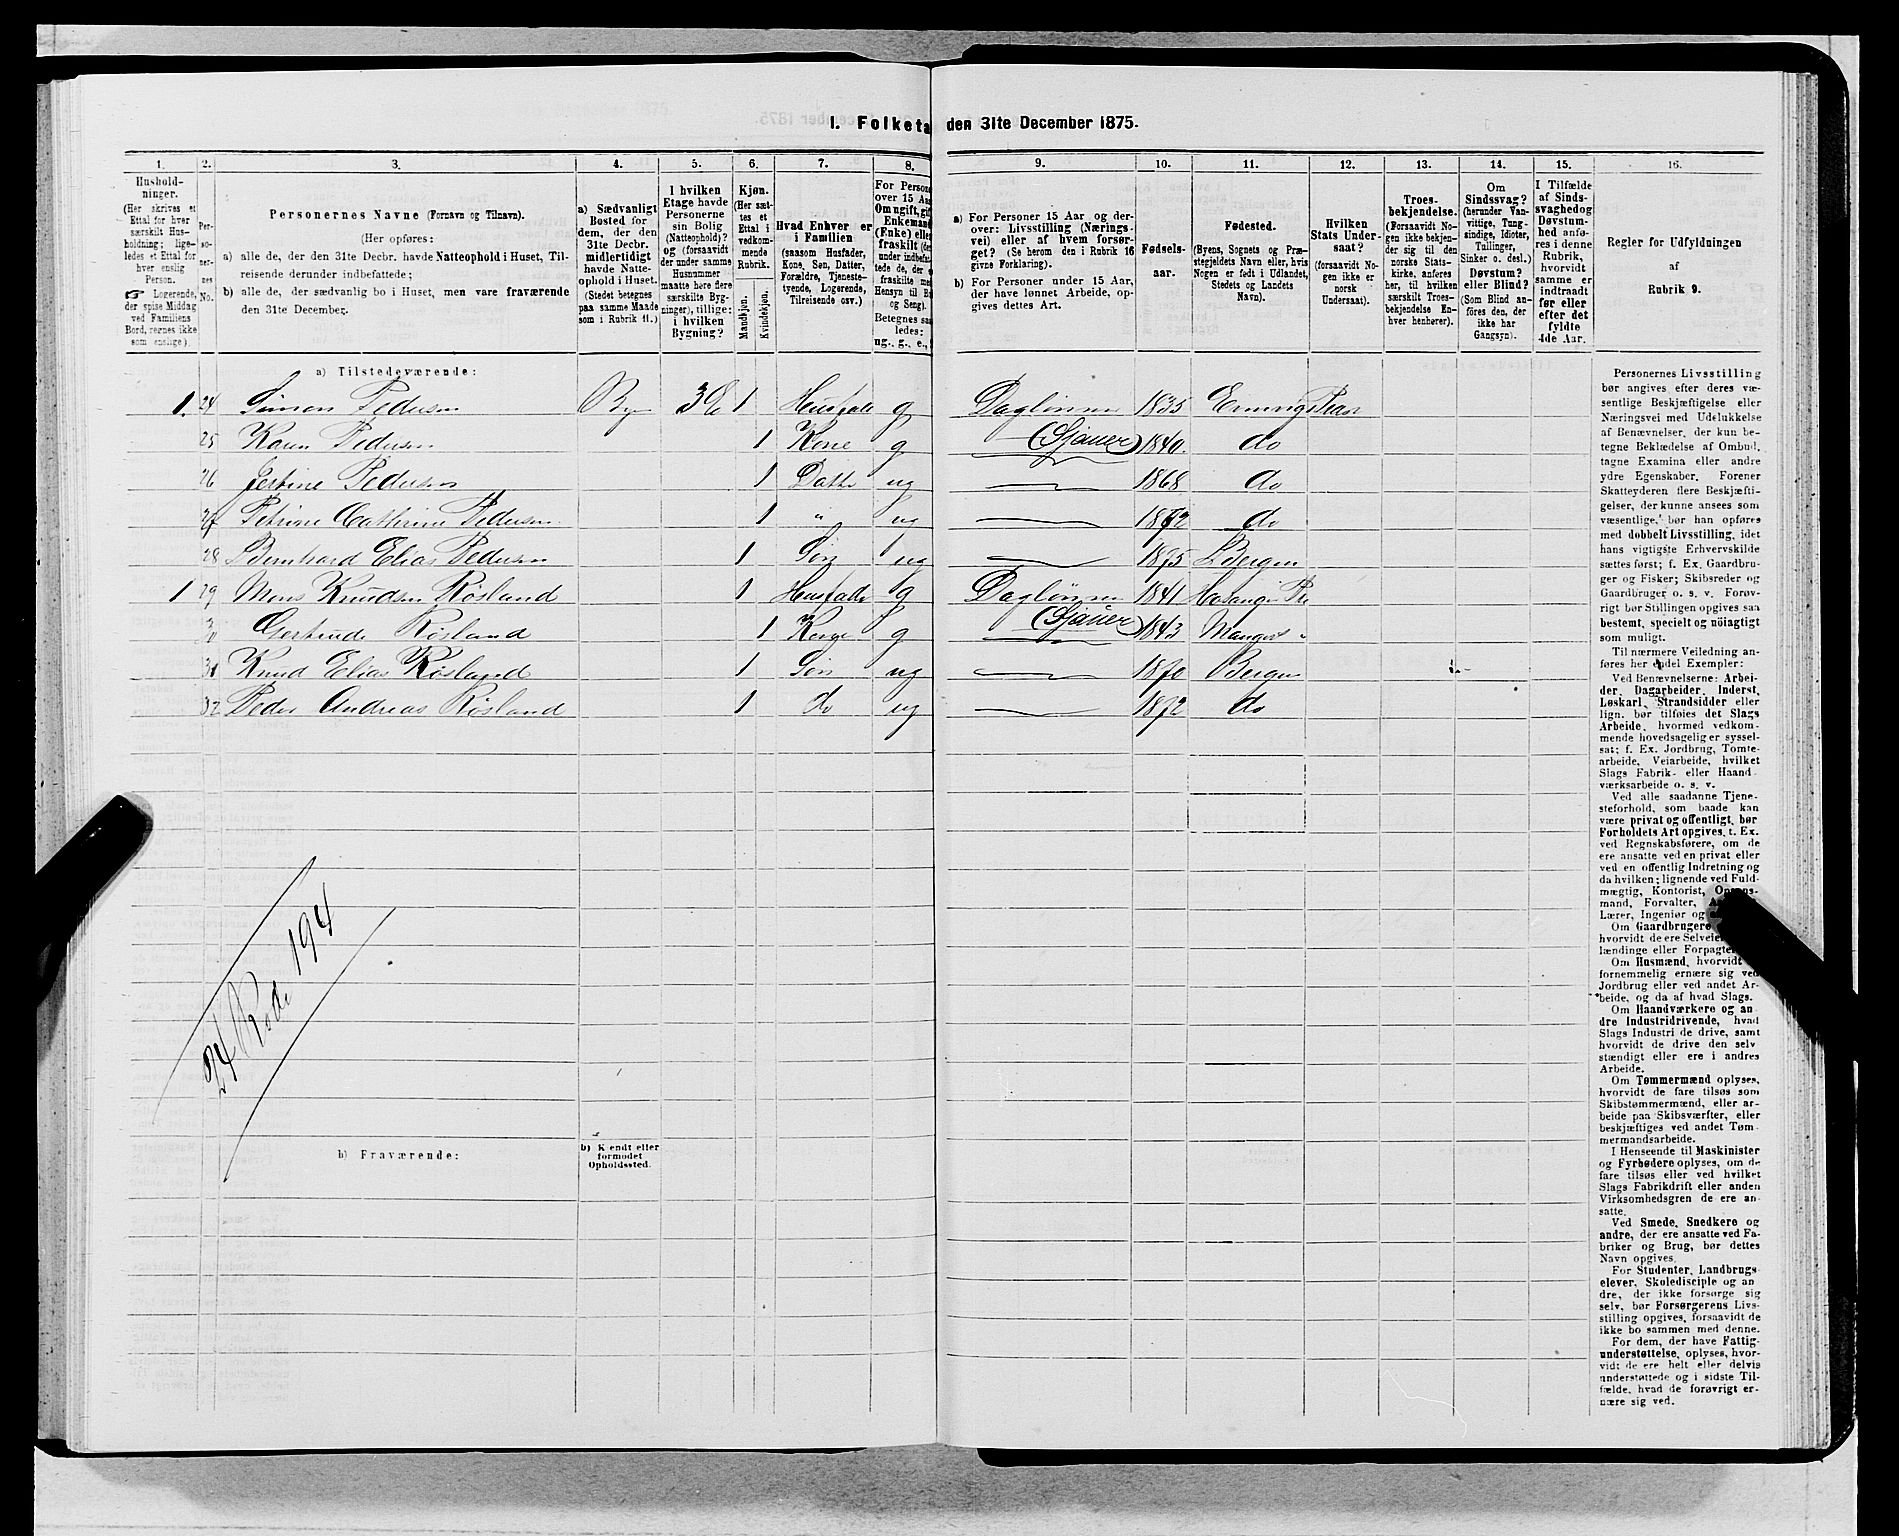 I. Folketa den 31te December 1875.
1. 2. 3. 4. 5. 6. 7. 8. 9. 10. 11. 12. 13. 14. 15. 16.
Hushold-
ninger.
(Her skrives et
Ettal for hver
særskilt Hus-
holdning; lige-
ledes et Ettal for
hver enslig
Person.
☞ Logerende,
der spise Middag
ved Familiens
Bord, regnes ikke
som enslige).
Per-
so-
ner-
nes
No.
Personernes Navne (Fornavn og Tilnavn).
(Her opføres:
a) alle de, der den 31te Decbr. havde Natteophold i Huset, Til-
reisende derunder indbefattede;
b) alle de, der sædvanlig bo i Huset, men vare fraværende
den 31te December.
a) Sædvanligt
Bosted for
dem, der den
31te Decbr.
midlertidigt
havde Natte-
ophold i Huset.
(Stedet betegnes
paa samme Maade
som i Rubrik 11.)
I hvilken
Etage havde
Personerne
sin Bolig
(Natteophold)?
og (forsaavidt
der under samme
Husnummer
maatte høre flere
særskilte Byg-
ninger), tillige:
i hvilken
Bygning?
Kjøn.
(Her sæt-
tes et
Ettal i
vedkom-
mende
Rubrik.
Mandkjøn.
Kvindekjøn.
Hvad Enhver er
i Familien
(saasom Husfader,
Kone, Søn, Datter,
Forældre, Tjeneste-
tyende, Logerende,
Tilreisende osv.)
For Persone
over 15 Aar
Om ugift, gif
Enkemand
(Enke) elle
fraskilt (der
under indbefat-
tede de, der e
fraskilte med
Hensyn til Bo
og Seng).
Betegnes saa
ledes:
ug., g., e.,
a) For Personer 15 Aar og der-
over: Livsstilling (Nærings-
vei) eller af hvem forsør-
get? (Se herom den i Rubrik 16
givne Forklaring).
b) For Personer under 15 Aar,
der have lønnet Arbeide, op-
gives dettes Art.
Fødsels-
aar.
Fødested.
(Byens, Sognets og Præ-
stegjeldets Navn eller, hvis
Nogen er født i Udlandet,
Stedets og Landets
Navn).
Hvilken
Stats Under-
saat?
(forsaavidt No-
gen ikke er
norsk
Undersaat).
Troes-
bekjendelse.
(Forsaavidt No-
gen ikke bekjen-
der sig til den
norske Stats-
kirke, anføres
her, til hvilken
særskilt Troes-
bekjendelse En-
hver henhører).
Om
Sindssvag?
(herunder Van-
vittige, Tung-
sindige, Idioter,
Tullinger,
Sinker o. desl.)
Døvstum?
eller Blind?
(Som Blind an-
føres den, der
ikke har
Gangsyn).
I Tilfælde
af Sinds-
svaghed og
Døvstum-
hed anfø-
res i denne
Rubrik,
hvorvidt
samme er
indtraadt
før eller
efter det
fyldte
4de Aar.
Regler for Udfyldningen
af
Rubrik 9.
a) Tilstedeværende:
1. 24 Simon Pedersen By 3 E 1 Husfade g Daglønner 1835
25 Karen Pedersen 1 Kone g (Sjauer) 1840. do
26 Pedersen 1 Datte ug 1868 do
27 Petrine Cathrine Pedersen 1 " ug 1872 do
28 Bernhard Elias Pedersen 1 Søn ug 1875 Bergen
1 29 Mons Knudsen Røsland 1 Husfade g Daglønner 1841
30 Gertrude Røsland 1 Kone g (Sjauer) 1843 Mangers "
31 Knud Elias Røsland 1 Søn ug 1870 Bergen
32 Peder Andreas Røsland 1 do ug 1872 do
24 Rode 194
b) Fraværende:
b) Kjendt eller
formodet
Opholdssted.
Personernes Livsstilling
bør angives efter deres væ-
sentlige Beskjæftigelse eller
Næringsvei med Udelukkelse
af Benævnelser, der kun be-
tegne Beklædelse af Ombud,
tagne Examina eller andre
ydre Egenskaber. Forener
Skatteyderen flere Beskjæfti-
gelser, der kunne ansees som
væsentlige, bør han opføres
med dobbelt Livsstilling, idet
hans vigtigste Erhvervskilde
sættes først; f. Ex. Gaardbru-
ger og Fisker; Skibsreder og
Gaardbruger o. s. v. Forøv-
rigt bør Stillingen opgives saa
bestemt, specielt og nöiagtigt
som muligt.
Til nærmere Veiledning an-
føres her endel Exempler:
Ved Benævnelserne: Arbei-
der, Dagarbeider, Inderst,
Løskarl, Strandsidder eller
lign. bør tilføies det Slags
Arbeide, hvormed vedkom-
mende hovedsagelig er syssel-
sat; f. Ex. Jordbrug, Tomte-
arbeide, Veiarbeide, hvilket
Slags Fabrik- eller Haand-
værksarbeide o. s. v.
Ved alle saadanne Tjene-
steforhold, som baade kan
være privat og offentligt, bør
Forholdets Art opgives, t. Ex.
ved Regnskabsførere, om de
ere ansatte ved en privat eller
ved en offentlig Indretning og
da hvilken; lignende ved Fuld-
mægtig, Kontorist, Opsyns-
mand, Forvalter,
Lærer, Ingeniør og
Om Gaardbrugere
hvorvidt de ere Selveier
lændinge eller Forpagte
Om Husmænd, hvorvidt
fornemmelig ernære sig ved
Jordbrug eller ved andet Ar-
beide, og da af hvad Slags.
Om Haandværkere og an
dre Industridrivende, hvad
Slags Industri de drive, samt
hvorvidt de drive den selv-
stændigt eller ere i andres
Arbeide.
Om Tømmermænd oplyses,
hvorvidt de fare tilsøs som
Skibstømmermænd, eller ar-
beide paa Skibsværfter, eller
beskjæftiges ved andet Tøm-
mermandsarbeide.
I Henseende til Maskinister
og Fyrbødere oplyses, om de
fare tilsøs eller ved hvilket
Slags Fabrikdrift eller anden
Virksomhedsgren de ere an-
satte.
Ved Smede, Snedkere og
andre, der ere ansatte ved Fa-
briker og Brug, bør dettes
Navn opgives.
For Studenter, Landbrugs-
elever, Skoledisciple og an
dre, der ikke forsørge sig
selv, bør Forsørgerens Livs-
stilling opgives, forsaavidt de
ikke bo sammen med denne.
For dem, der have Fattig-
understøttelse, oplyses, hvor-
vidt de ere helt eller delvis
understøttede og i sidste Til-
fælde, hvad de forøvrigt er-
nære sig ved.